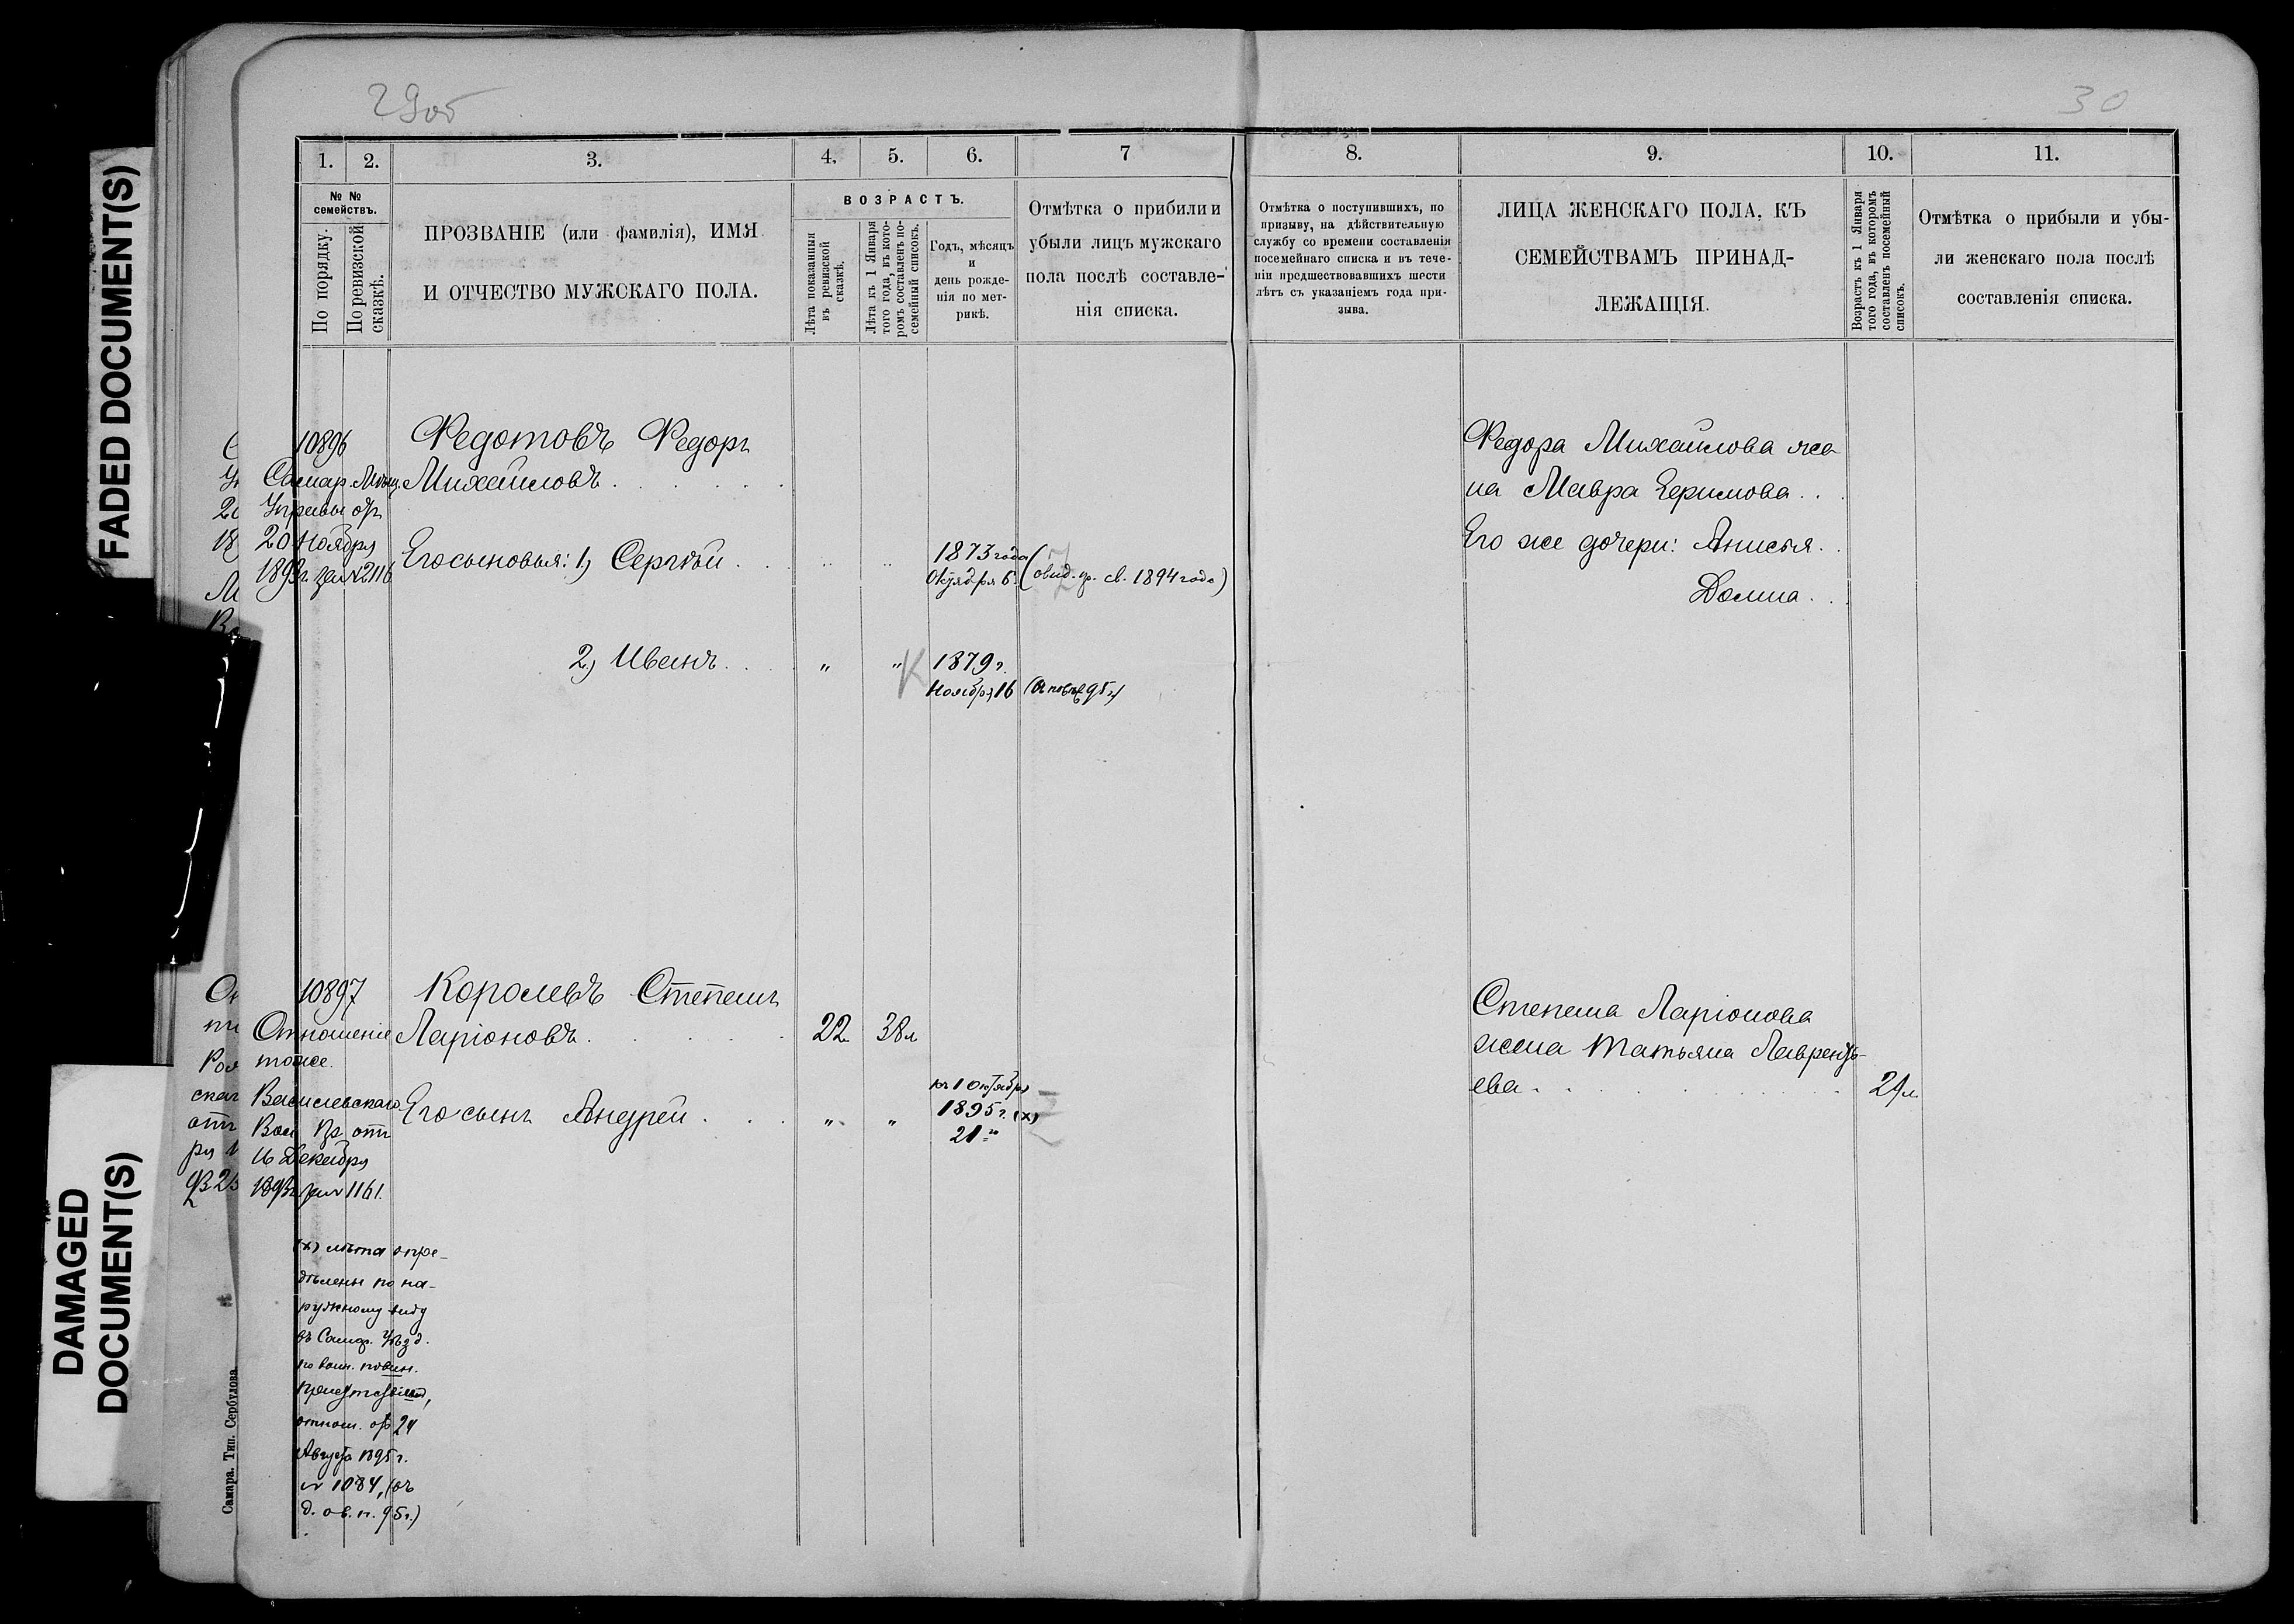 29об
30
1.
2.
3.
4.
5.
6.
7
8.
9.
10.
11.
№ №
семействъ.
По порядку.
По ревизской
сказкѣ.
ПРОЗВАНІЕ (или фамилія), ИМЯ
И ОТЧЕСТВО МУЖСКАГО ПОЛА.
ВОЗРАСТЪ.
Лѣта показанныя
въ ревизской
сказкѣ.
Лѣта къ 1 Января
того года, въ кото-
ромъ составленъ по-
семейный списокъ.
Годъ, мѣсяцъ
и
день рожде-
нія по мет-
рикѣ.
Отмѣтка о прибили и
убыли лицъ мужскаго
пола послѣ составле-
нія списка.
Отмѣтка о поступившихъ, по
призыву, на дѣйствительную
службу со времени составленія
посемейнаго списка и въ тече-
ніи предшествовавшихъ шести
лѣтъ съ указаніемъ года при-
зыва.
ЛИЦА ЖЕНСКАГО ПОЛА, КЪ
СЕМЕЙСТВАМЪ ПРИНАД-
ЛЕЖАЩІЯ.
Возрастъ къ 1 Января
того года, въ которомъ
составленъ посемейный
списокъ.
Отмѣтка о прибыли и убы-
ли женскаго пола послѣ
составленія списка.
10896
Самар. Мѣщ.
Управы отъ
20 Ноября
1893г. за №2116
Федотовъ Федоръ
Михайловъ
Его сыновья: 1) Сергѣй
1873 года
Октября 6
св. 1894 года)
2) Иванъ
" "
1879 г.
Ноября 16
Федора Михайлова же-
на Мавра Ефимова
Его же дочери: Анисья
Домна
10897
Отношеніе
тоже
Василевскаго
Вол. Пр. отъ
16 Декабря
1893г. за № 1161.
Королевъ Степанъ
Ларіоновъ 22 38л
Его сынъ Андрей " "
къ 1 Октября
1895 г. (х)
21
Степана Ларіонова
жена Татьяна Лавренть-
ева 21л
(х) лѣта опре-
дѣлены по на-
ружному виду
въ Самар. Уѣзд.
по воин. повин.
отнош. отъ 24
Августа 1895 г.
№ 1084, (въ
95 г.)
Самара. Тип. Сербулова.
FADED DOCUMENT(S)
DAMAGED
DOCUMENT(S)